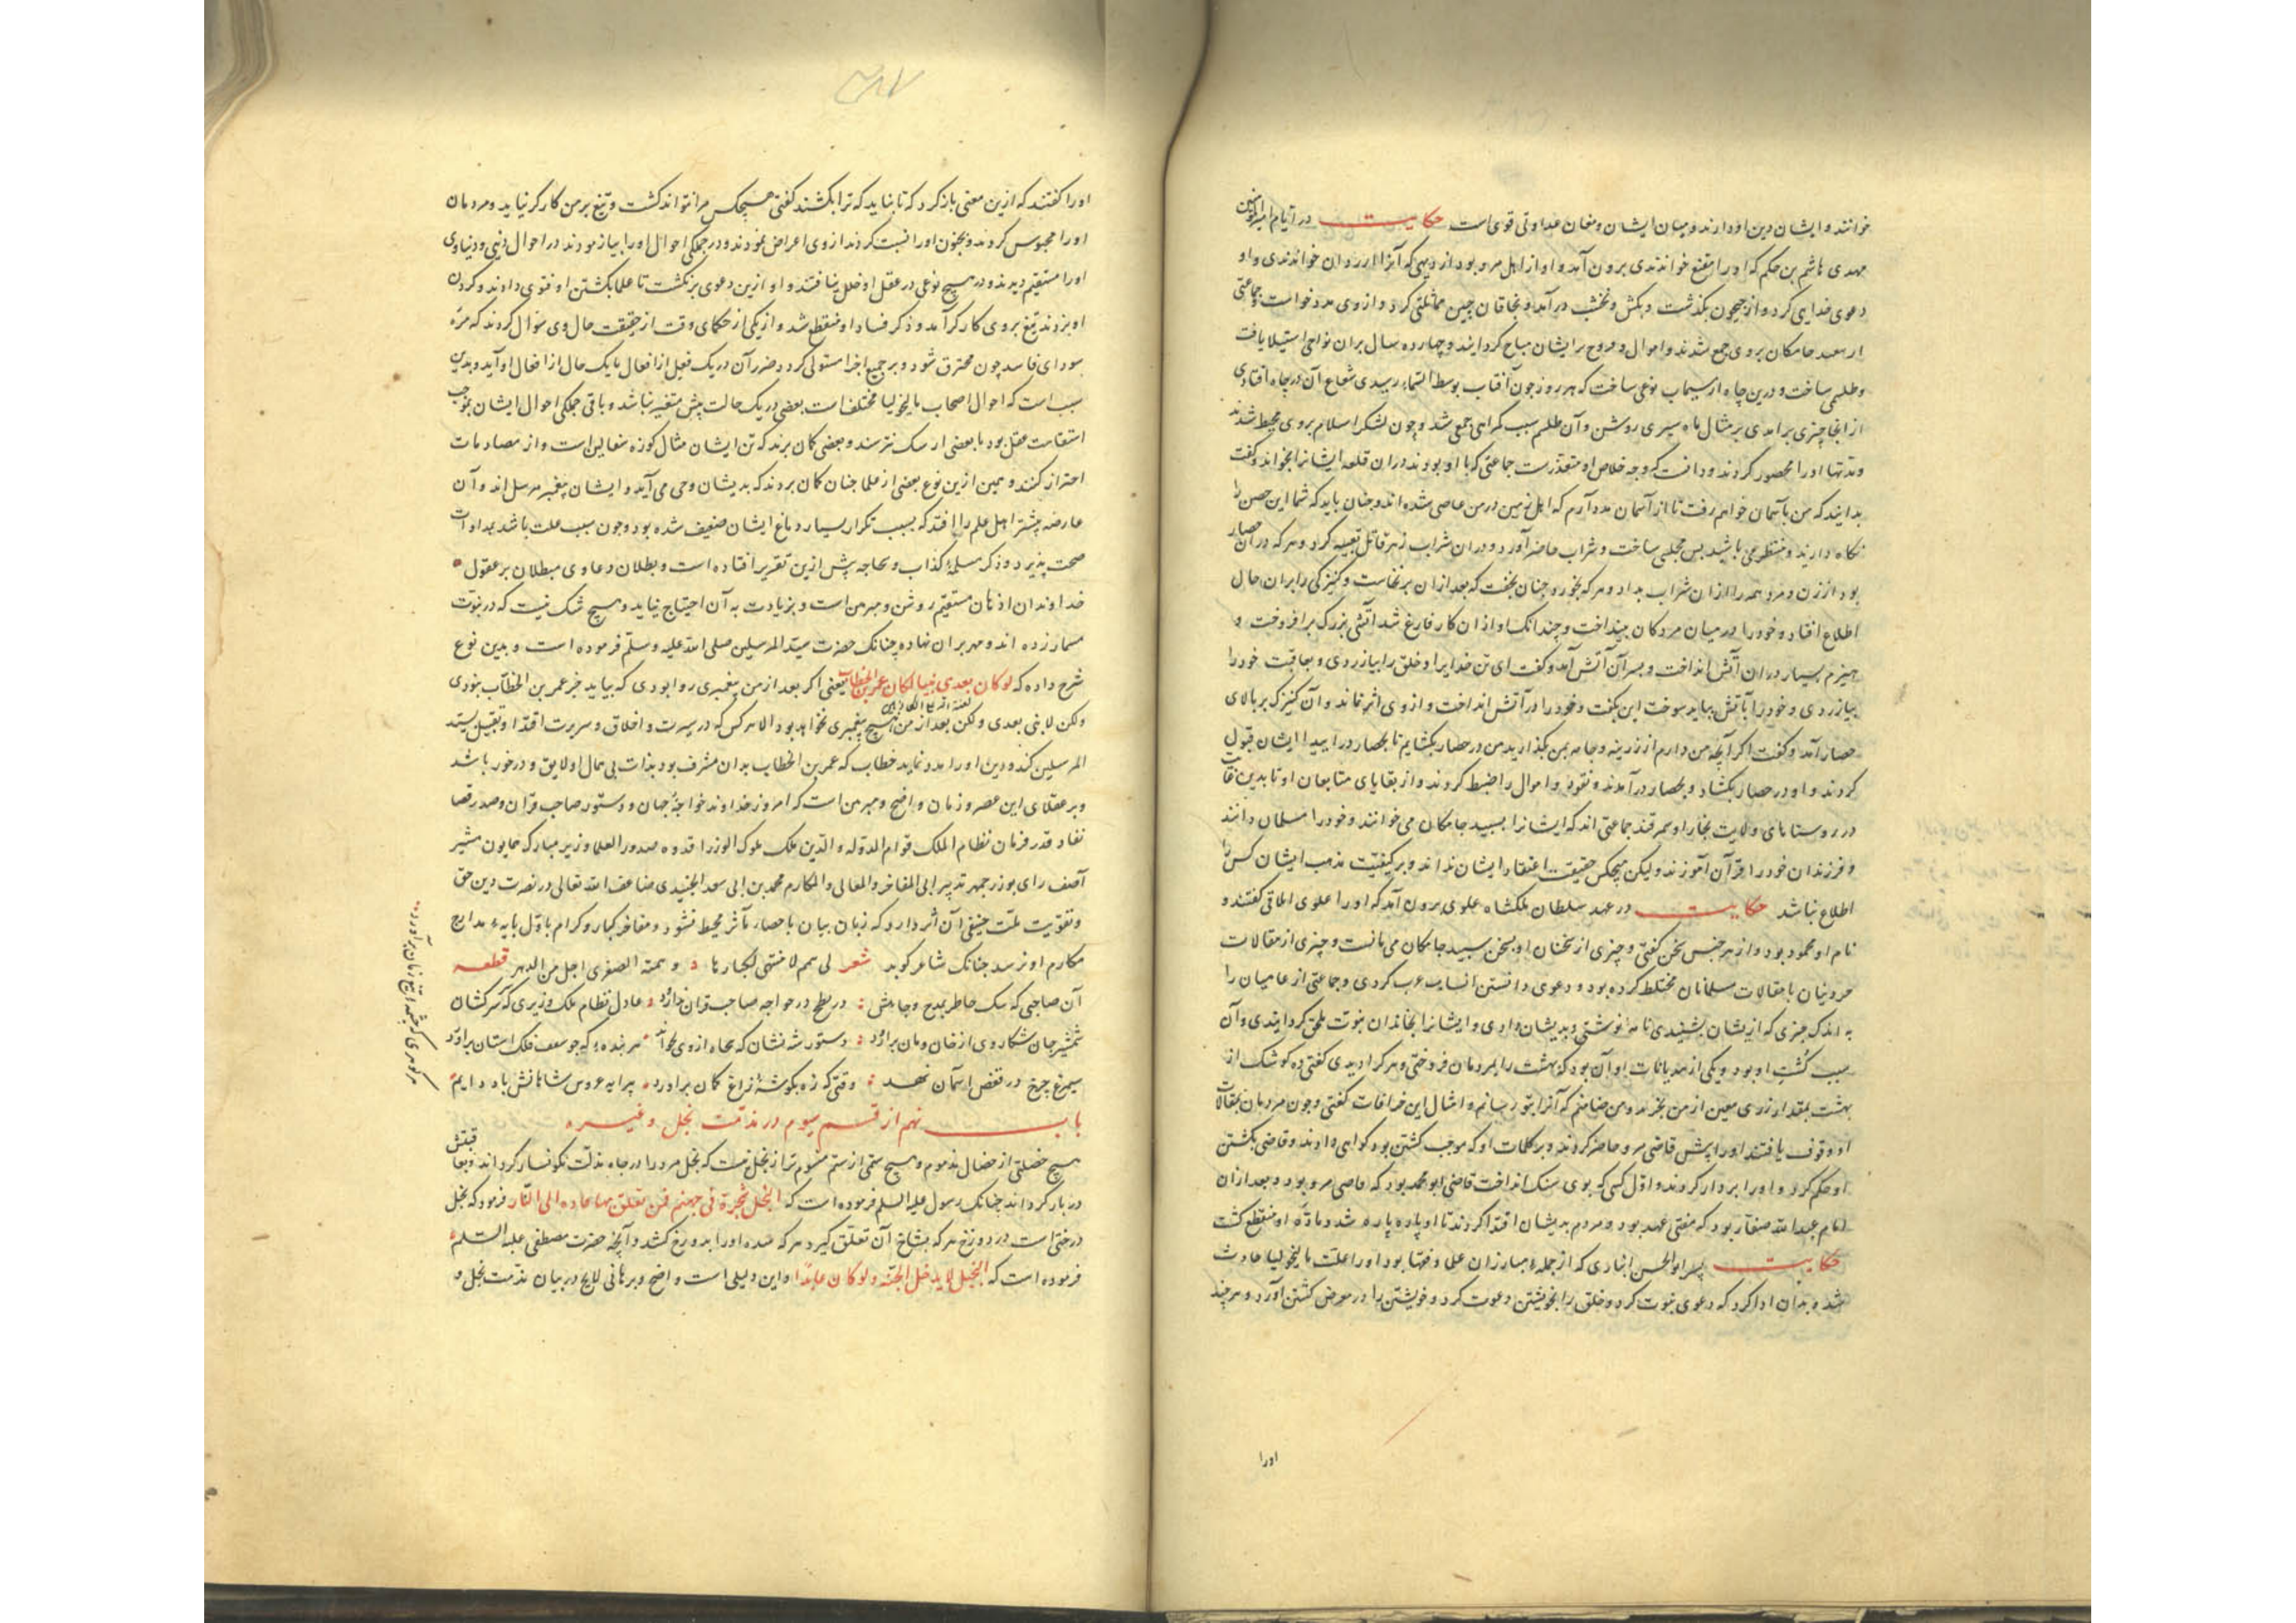 خوانند و ایشان دین او دارند و میان ایشان و مغان عداوتی قوی است حکایت در ایام امیرالمؤمنین
مهدی هاشم بن حکم که او را مقنع خواندندی برون آمد و او از اهل مرو بود از دیهی که آنرا خواندندی و او
دعوی خدایی کرد و از جیحون بگذشت و بکش و نخشب در آمد و بخاقان چین کرد و از وی مدد خواست و جماعتی
از سپید جامکان بروی جمع شدند و اموال و فروج بر ایشان مباح کردانید و چهارده سال بران نواحی استیلا یافت
و طلسمی ساخت و درین چاه از سیماب نوعی ساخت که هر روز چون آفتاب بوسط السماء رسیدی شعاع آن در چاه افتادی
از انجا چیزی برآمدی بر مثال ماه سپری روشن و آن طلسم سبب کمراهی جمعی شد و چون لشکر اسلام بروی محیط شدند
و مدتها او را محصور کردند و دانست که وجه خلاص او متعذرست جماعتی که با او بودند دران قلعه ایشانرا بخواند و کفت
بدانید که من بآسمان خواهم رفت تا از آسمان مدد آرم که اهل زمین در من عاصی شده‌اند و چنان باید که شما این حصن را
نکاه دارید و منتظر می باشید پس مجلسی ساخت و شراب حاضر آورد و دران شراب زهر قاتل تعبیه کرد و هر که در آن حصار
بود از زن و مرد همه را ازان شراب بداد و هر که بخورد چنان بخفت که بعد ازان برنخاست و کنیزکی را بران حال
اطلاع افتاد و خود را در میان مردکان بینداخت و چندانک او از ان کار فارغ شد آتشی بزرک برافروخت و
هیزم بسیار دران آتش انداخت و بسر آن آتش آمد و کفت ای تن خدای را و خلق را بیازردی و بعاقبت خود را
بیازردی و خود را بآتش بباید سوخت این بکفت و خود را در آتش انداخت و از وی اثر نماند و آن کنیزک بر بالای
حصار آمد و کفت اکر آنچه من دارم از زرینه و جامه بمن بکذارید من در حصار بکشایم تا بحصار درایید ایشان قبول
کردند و او در حصار بکشاد و بحصار درآمدند و نقود و اموال را ضبط کردند و از بقایای متابعان او تا بدین وقت
در روستاهای ولایت بخارا و سمرقند جماعتی اند که ایشانرا سپید جامکان می‌خوانند و خود را مسلمان دانند
و فرزندان خود را قرآن آموزند و لیکن هیچکس حقیقت اعتقاد ایشان نداند و بر کیفیت مذهب ایشان کس را
اطلاع نباشد حکایت در عهد سلطان ملکشاه علوی برون آمد که او را علوی کفتند و
نام او محمود بود و از هر جنس سخن کفتی و چیزی از سخنان او بسخن سپید جامکان می مانست و چیزی از مقالات
با مقالات مسلمانان مختلط کرده بود و دعوی دانستن انساب عرب کردی و جماعتی از عامیان را
به اندک چیزی که از یشان بشنیدی نامه نوشتی و بدیشان دادی و ایشانرا بخاندان نبوت ملحق کردانیدی و آن
سبب کشتن او بود و یکی از هذیانات او آن بود که بهشت را بمردمان فروختی و هر کرا دیدی کفتی ده کوشک از
بهشت بمقدار زری معین از من بخر و من ضامنم که آنرا بتو رسانم و امثال این خرافات کفتی و چون مردمان بمقالات
او وقوف یافتند او را پیش قاضی مرو حاضر کردند و بر کلمات او که موجب کشتن بود کواهی دادند و قاضی بکشتن
او حکم کرد و او را بر دار کردند و اول کسی که بوی سنک انداخت قاضی ابو محمد بود که قاضی مرو بود و بعد ازان
امام عبدالله صفار بود که مفتی عهد بود و مردم بدیشان اقتدا کردند تا او پاره پاره شد و ماده او منقطع کشت
حکایت پسر ابوالحسن انباری که از جمله مبارزان علی و فقها بود او را علت مالیخولیا حادث
شد و بدان ادا کرد که دعوی نبوت کرد و خلق را بخویشتن دعوت کرد و خویشتن را در معرض کشتن آورد و هر چند
او را
او را کفتند که ازین معنی باز کرد که تا نباید که ترا بکشند کفتی هیچکس مرا نتواند کشت و تیغ بر من کارکر نیاید و مردمان
او را محبوس کردند و بجنون او را نسبت کردند از وی اعراض نمودند و در جملکی احوال او را بیازمودند در احوال دینی و دنیاوی
او را مستقیم دیدند و در هیچ نوعی در عقل او خلل نیافتند و او ازین دعوی برنکشت تا علما بکشتن او فتوی دادند و کردن
او بزدند تیغ بر وی کارکر آمد و ذکر فساد او منقطع شد و از یکی از حکمای وقت از حقیقت حال وی سؤال کردند که مره
سودای فاسد چون محترق شود و بر جمیع اجزا مستولی کردد ضرر آن در یک فعل از افعال یا یک حال از احوال او آید و بدین
سبب است که احوال اصحاب مالیخولیا مختلف است بعضی در یک حالت بیش متغیر نباشد و باقی جملکی احوال ایشان بموجب
استقامت عقل بود یا بعضی از سک نترسند و بعضی کمان برند که تن ایشان مثال کوزه سفالین است و از مصادمات
احتراز کنند و همین ازین نوع بعضی از علما چنان کمان بردند که بدیشان وحی می‌آید و ایشان پیغمبر مرسل اند و آن
عارضه بیشتر اهل علم را افتد که بسبب تکرار بسیار دماغ ایشان ضعیف شده بود و چون سبب علت باشد بمداوات
صحت پذیرد و ذکر مسیلمه کذاب و سجاحه پیش ازین تقریر افتاده است و بطلان دعاوی مبطلان بر عقول
خداوندان اذهان مستقیم روشن و مبرهن است و بزیادت به آن احتیاج نیاید و هیچ شک نیست که در نبوت
مسمار زده اند و مهر بران نهاده چنانک حضرت سید المرسلین صلی الله علیه و سلم فرموده است و بدین نوع
شرح داده که لو کان بعدی نبیا لکان عمر بن الخطاب یعنی اکر بعد از من پیغمبری روا بودی که بیاید جز عمر بن الخطاب نبودی
ولکن لا نبی بعدی ولکن بعد از من هیچ پیغمبری نخواهد بود الا هر کس که در سیرت و اخلاق و سریرت اقتدا و تقیل بسید
المرسلین کند و دین او را مدد نماید خطاب که عمر بن الخطاب بدان مشرف بود بذات بی همال او لایق و درخور باشد
و بر عقلای این عصر و زمان واضح و مبرهن است که امروز خداوند خواجه جهان و دستور صاحب قران و صدر قضا
نفاذ قدر فرمان نظام الملک قوام الدوله و الدین ملک ملوک الوزرا قدوه صدور العلما وزیر مبارک همایون مشیر
آصف رای بوزرجمهر تدبیر ابی المفاخر و المعالی و المکارم محمد بن ابی سعد الجنیدی ضاعف الله تعالی در نصرت دین حق
و تقویت ملت حنیفی آن اثر دارد که زبان بیان باحصار مآثر محیط نشود و مفاخر کبار و کرام باول پایه مدارج
مکارم او نرسد چنانک شاعر کوید شعر لی همم لا منتهی لکبارها و همته الصغری اجل من الدهر قطعه
آن صاحبی که سک خاطر بمدح و جاهش در نطح در مواجه صاحب قران عادل نظام ملک وزیری که سرکشان
شمشیر جان شکار وی از خان و مان برآرد دستور شه نشان که
سیمرغ چرخ در قفص آسمان نهد وقتی که زه بکوشه زاغ کمان برآورد پیرایه عروس باد دایم
هر کوهری که چشمه تیغ زمان برآورد
باب نهم از قسم سیوم در مذمت بخل و غیره
هیچ خصلتی از خصال مذموم و هیچ ستمی از ستم مشوم تر از بخل نیست که بخل مرد را در چاه مذلت نکونسار کرداند و بعاقبتش
در نار کرداند چنانک رسول علیه السلم فرموده است که البخل شجرة فی جهنم فمن تعلق بها قاده الی النار فرمود که بخل
درختی است در دوزخ هر که بشاخ آن تعلق کیرد هر که شده او را بدوزخ کشد و آنچه حضرت مصطفی علیه السلم
فرموده است که البخیل لا یدخل الجنة و لو کان عابدا و این دلیلی است واضح و برهانی لایح در بیان مذمت بخل و